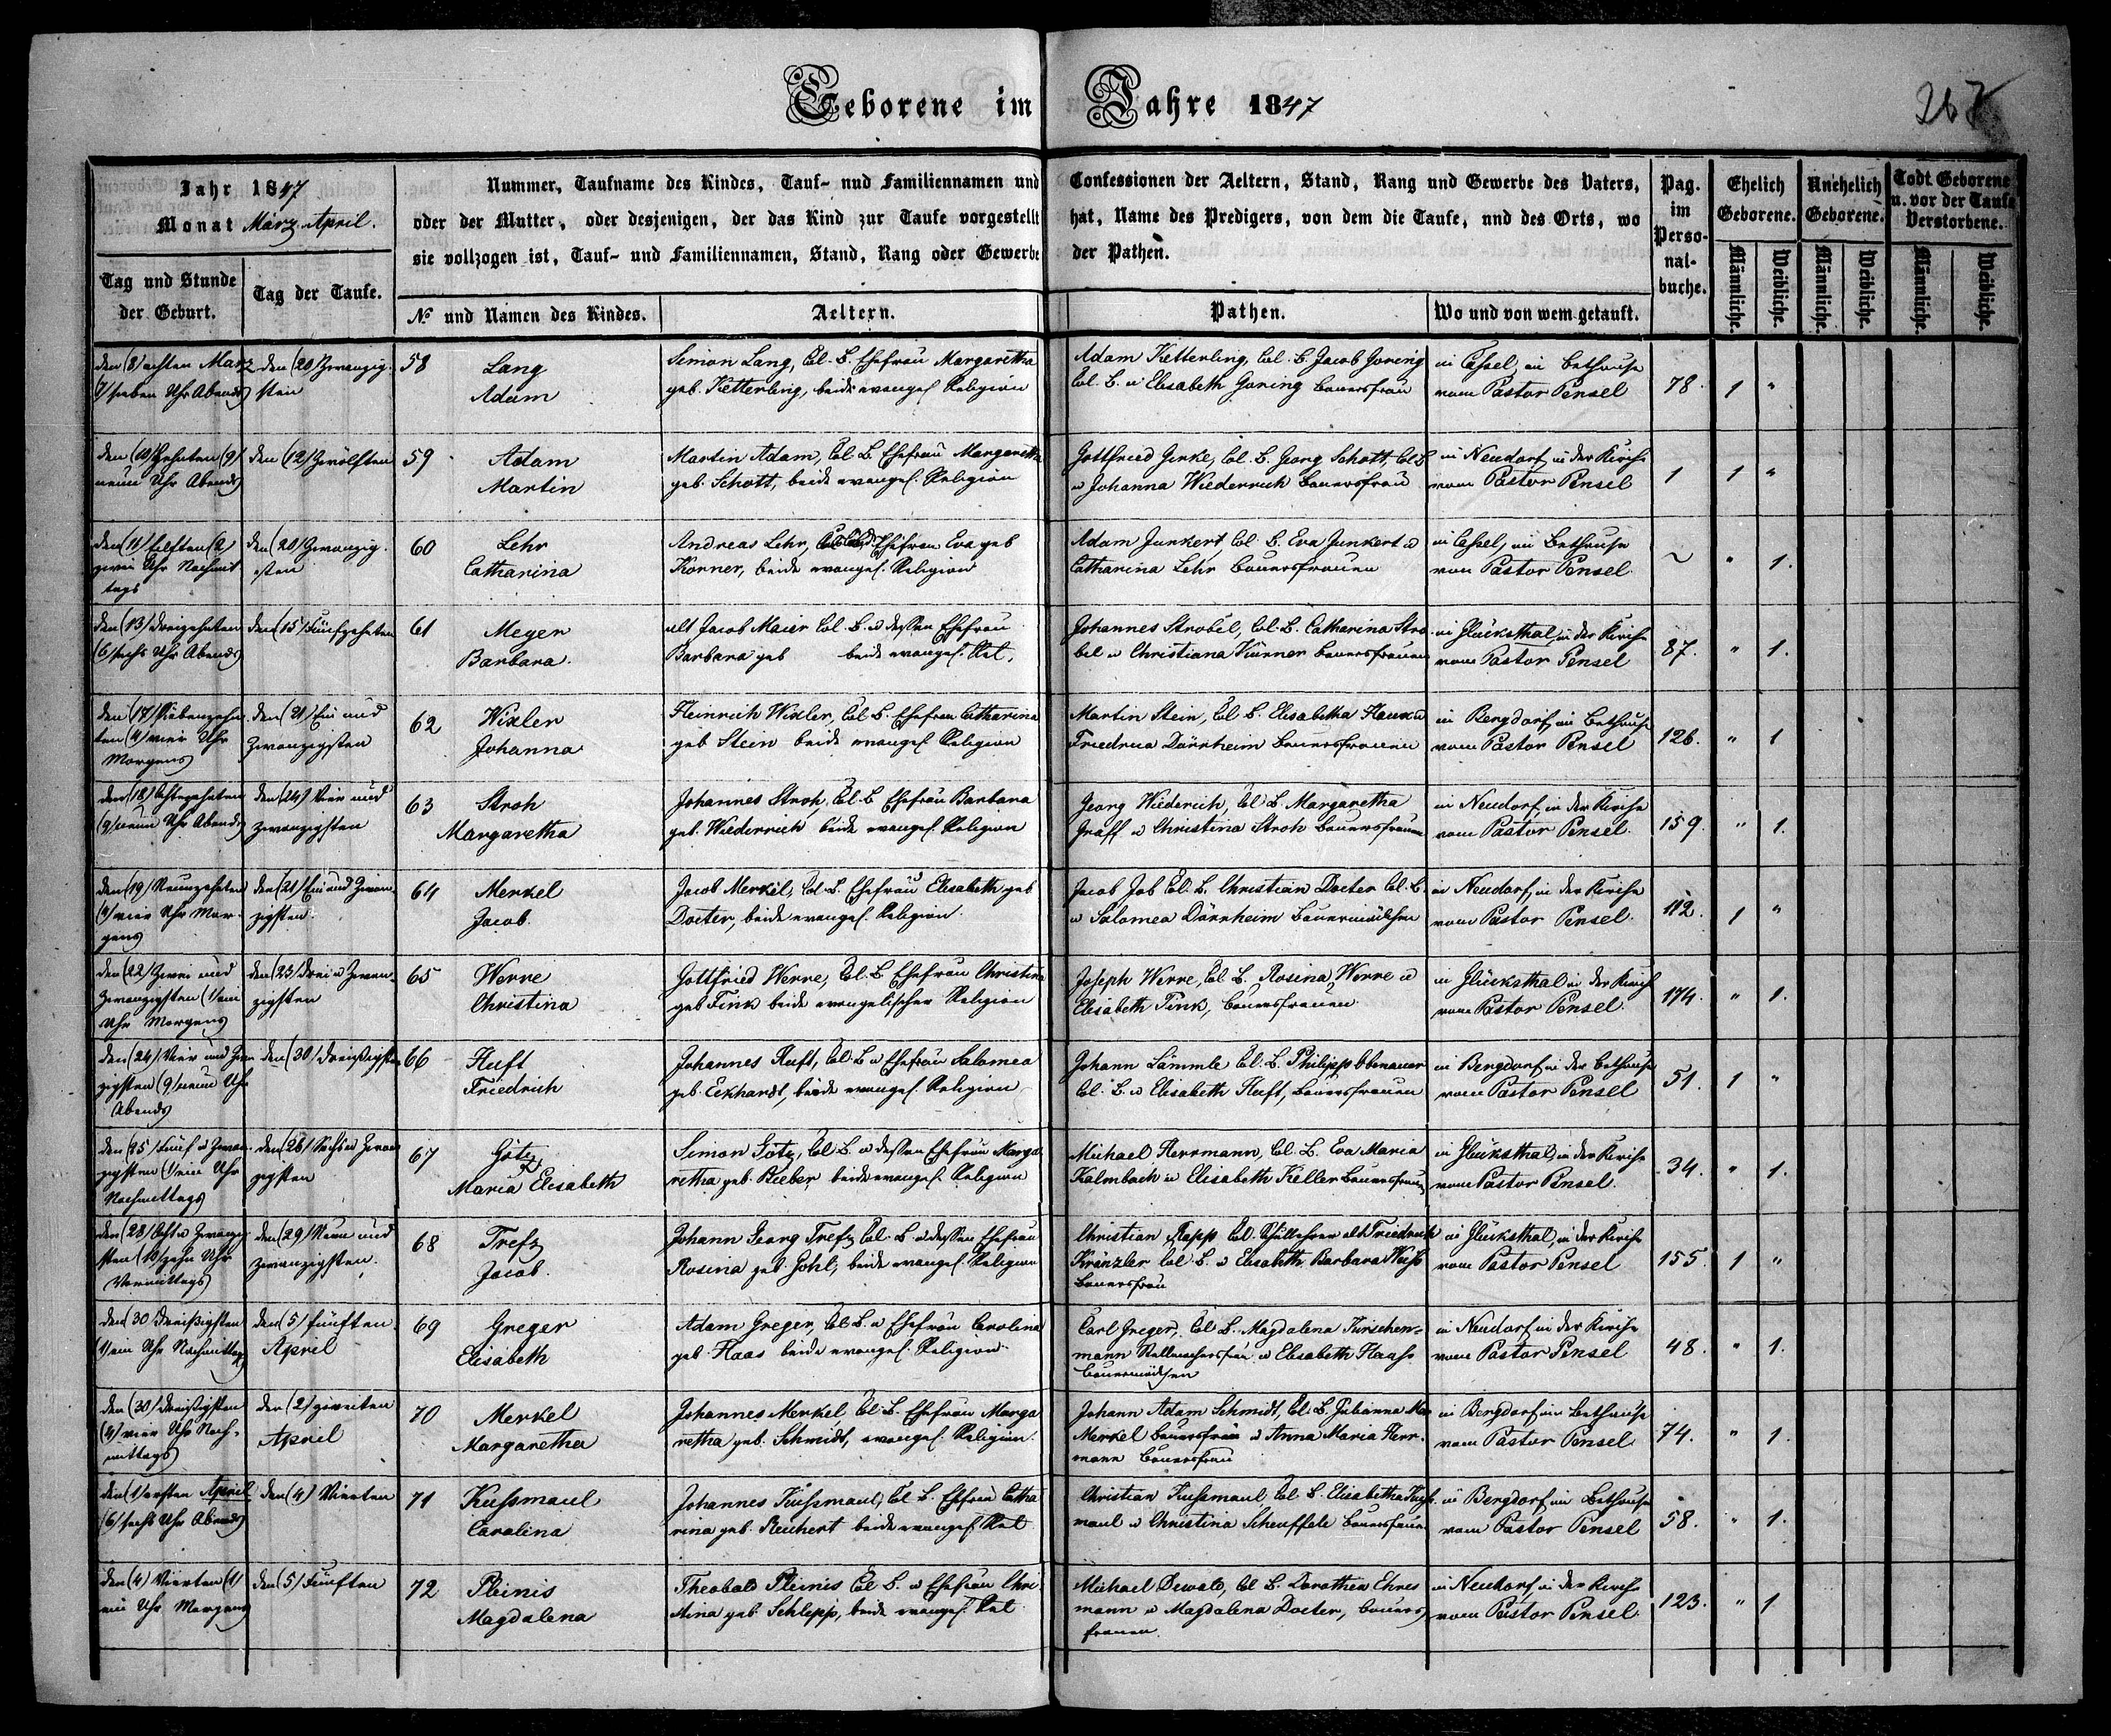 Geborene im Jahre 1847
287
Jahr 1847
Monat März. April.
Nummer, Taufname des Kindes, Tauf- und Familiennamen und Confessionen der Aeltern, Stand, Rang und Gewerbe des Vaters,
oder der Mutter, oder desjenigen, der das Kind zur Taufe vorgestellt hat, Name des Predigers, von dem die Taufe, und des Orts, wo
sie vollzogen ist, Tauf- und Familiennamen, Stand, Rang oder Gewerbe der Pathen.
Pag. im Perso-nal-buche.
Ehelich Geborene.
Unehelich Geborene.
Todt Geborene u. vor der Taufe Verstorbene.
Tag und Stunde der Geburt.
Tag der Taufe.
№ und Namen des Kindes.
Aeltern.
Pathen.
Wo und von wem getauft.
Männliche. Weibliche. Männliche. Weibliche. Männliche. Weibliche.
den (8) achten März den (20) Zwanzig- 58 Lang Simon Lang, Col. B. Ehefrau Margaretha Adam Ketterling, Col. B. Jacob Goring in Cassel, im Bethause 78. 1 "
(7) sieben Uhr Abends sten Adam geb. Ketterling, beide evangel. Religion Col. B. u Elisabeth Goring Bauersfrau vom Pastor Pensel
den (10) Zehnten (9) den (12) Zwölften 59 Adam Martin Adam, Col. B. Ehefrau Margaretha Gottfried Jerke, Col. B. Georg Schott, Col. B in Neudorf, in der Kirche 1 1 "
neun Uhr Abends Martin geb. Schott, beide evangel. Religion u Johanna Wiederrich Bauersfrau vom Pastor Pensel
den (11) Eilften (2) den (20) Zwanzig- 60 Lehr Andreas Lehr, Ehefrau Eva geb Adam Junkert, Col. B. Eva Junkert u in Cassel, im Bethause ~ " 1.
zwei Uhr Nachmit sten Catharina Körner, beide evangel. Religion Catharina Lehr Bauersfrauen von Pastor Pensel.
tags
den (13) dreizehnten den (15) Fünfzehnten 61 Meyer alt Jacob Maier Col. B. u dessen Ehefrau Johannes Strobel, Col. B. Catharina Stro- in Glücksthal, in der Kirche 87. " 1.
(6) sechs Uhr Abends Barbara. Barbara geb beide evangel. Rel. bel u Christiana Kürner Bauersfrauen vom Pastor Pensel
den (17) Siebenzehn- den (21) Ein und 62 Wixler Heinrich Wixler, Col. B. Ehefrau Catharina Martin Stein, Col. B. Elisabetha Hauk u in Bergdorf im Bethause 126. " 1
ten (4) vier Uhr Zwanzigsten Johanna geb Stein beide evangel. Religion Friedrica Dörrheim Bauersfrauen vom Pastor Pensel
Morgens
den (18) Achtzehnten den (24) Vier und 63 Stroh Johannes Stroh, Col. B Ehefrau Barbara Georg Wiederich, Col. B. Margaretha in Neudorf, in der Kirche 159. " 1.
(9) neun Uhr Abends zwanzigsten Margaretha geb. Wiederrich beide evangel. Religion Graff u Christina Stroh Bauersfrauen vom Pastor Pensel.
den (19) Neunzehnten den (21) Ein und Zwan- 64 Merkel Jacob Merkel, Col. B. Ehefrau Elisabeth geb Jacob Job Col. B. Christian Docter Col. B. in Neudorf, in der Kirche 112. 1 "
(4) vier Uhr Mor- zigsten. Jacob. Docter, beide evangel. Religion. u Salomea Dörrheim Bauermädchen vom Pastor Pensel.
gens
den (22) Zwei und den (23) Drei u Zwan- 65 Werre Gottfried Werre, Col. B Ehefrau Christina Joseph Werre, Col. B. Rosina Werre u in Glücksthal in der Kirche 174. " 1.
Zwanzigsten (1) ein zigsten Christina geb Fink beide evangelischer Religion Elisabeth Fink, Bauersfrauen vom Pastor Pensel.
Uhr Morgens
den (24) Vier und Zwan- den (30) dreißigsten 66 Huft Johannes Huft, Col. B. u Ehefrau Salomea Johann Sämmle Col. B. Philipp Obenauer in Bergdorf in der Bethause 51. 1 "
zigsten (9) neun Uhr Friedrich geb. Eckhardt, beide evangel. Religion Col. B. u Elisabeth Huft, Bauersfrauen vom Pastor Pensel
Abends
den (25) Fünf u Zwan- den (26) Sechs u Zwan 67 Götz Simon Götz, Col. B. u dessen Ehefrau Marga Michael Herrmann, Col. B. Eva Maria in Glücksthal, in der Kirche 34. " 1.
zigsten (1) ein Uhr zigsten Maria Elisabeth retha geb. Bieber beide evangel. Religion Kalmbach u Elisabeth Keller Bauersfrauen vom Pastor Pensel.
Nachmittags
den (28) Acht u Zwanzig- den (29) Neun und 68 Trefz Johann Georg Trefz Col. B u dessen Ehefrau Christian Rapp Col. Schullehrer alt Friedrich in Glücksthal, in der Kirche 155. 1 "
sten (10) zehn Uhr zwanzigsten. Jacob. Rosina geb. Gohl, beide evangel. Religion Kränzler Col. B. u Elisabeth Barbara Kuss vom Pastor Pensel
Vormittags Bauersfrau
den (30) Dreißigsten den (5) fünften 69 Greger Adam Greger, Col. B. u Ehefrau Carolina Carl Greger, Col. B. Magdalena Kirschen- in Neudorf in der Kirche 48. " 1.
(1) ein Uhr Nachmittag April Elisabeth geb. Haas beide evangel. Religion. mann u Elisabeth Haass vom Pastor Pensel
Bauermädchen
den (30) Dreißigsten den (2) zweiten 70 Merkel Johannes Merkel Col. B. Ehefrau Marga Johann Adam Schmidt, Col. B. Julianna in Bergdorf im Bethause 74. " 1.
(4) vier Uhr Nach- April Margaretha retha geb. Schmidt, evangel. Religion. Merkel Bauersfrau u Anna Maria Herr- vom Pastor Pensel
mittags mann Bauersfrau
den (1) ersten April den (4) Vierten 71 Kussmaul Johannes Kussmaul, Col. B. Ehefrau Catha Christian Kussmaul Col. B. Elisabetha Kuss- in Bergdorf im Bethause 58. " 1.
(6) sechs Uhr Abends Carolina rina geb. Reichert beide evangel. Rel maul u Christina Scheuffele Bauersfrauen vom Pastor Pensel
den (4) Vierten (1) den (5) Fünften 72 Pleinis Theobald Pleinis Col. B. u Ehefrau Chri Michael Dewald, Col. B. Dorothea Ehres in Neudorf, in der Kirche 123. " 1
ein Uhr Morgens Magdalena stina geb. Schlepp, beide evangel. Rel mann u Magdalena Docter, Bauers vom Pastor Pensel.
frauen.